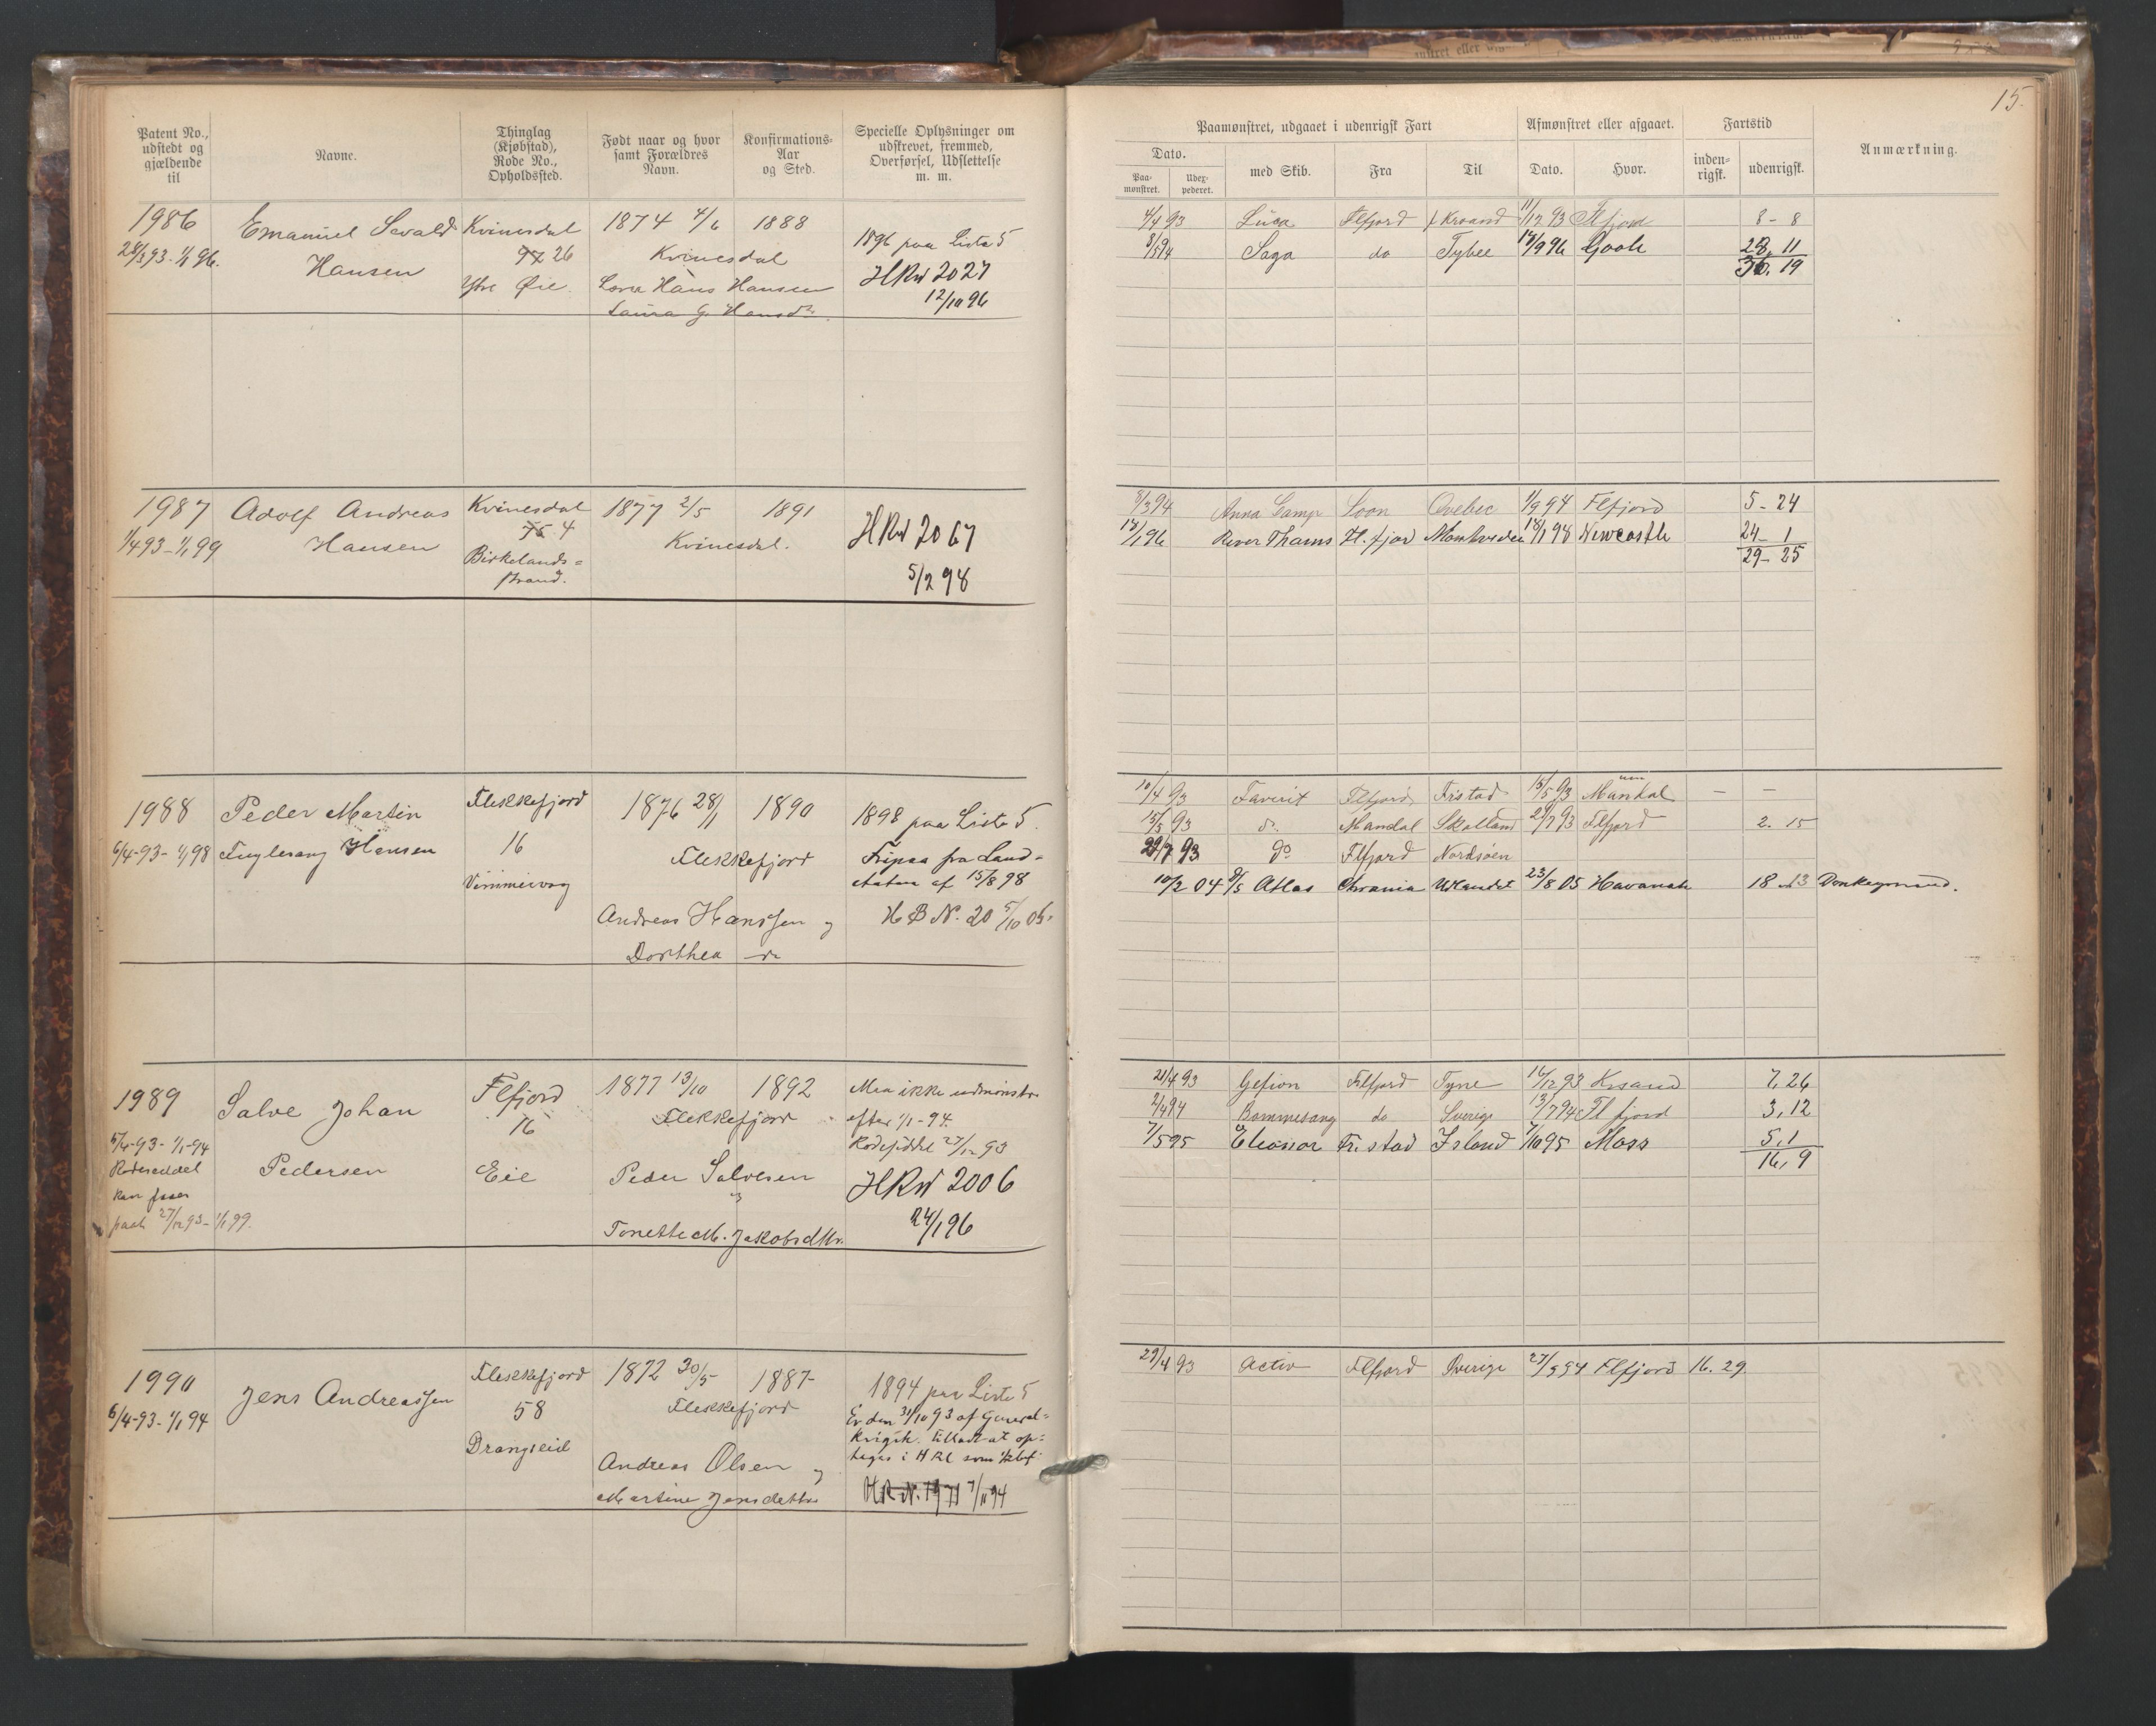 15.
Patent No., udstedt og gjældende til
Navne.
Thinglag (Kjøbstad), Rode No., Opholdssted.
Født naar og hvor samt Forældres Navn.
Konfirmations-Aar og Sted.
Specielle Oplysninger om udskrevet, fremmed, Overførsel, Udslettelse m. m.
Paamønstret, udgaaet i udenrigsk Fart
Dato.
Paa-mønstret.
Udex-pederet.
med Skib.
Fra
Til
Afmønstret eller afgaaet.
Dato.
Hvor.
Fartstid
inden-rigsk.
udenrigsk.
Anmærkning.
1986
28/3 93 - 1/1 96.
Emanuel Sevald
Hansen
Kvinesdal
26
Ytre Øie
1874 4/6 1888
Kvinesdal
Hans Hansen
Laura G. Hansdr.
1896 paa Liste 5
HRN 2027
12/10 96
4/4 93 Luca Flfjord Krsand 11/12 93 Flfjord 8 - 8
8/3 94 Saga do Tybee 19/9 96 Goole 28. 11
36. 19
1987
1/4 93 - 1/1 99
Adolf Andreas
Hansen
Kvinesdal
75 4
Birkelands=
strand.
1877 2/5 1891
Kvinesdal.
HRN 2067
5/2 98
8/3 94 Anna Camp Soon Qvebec 1/9 94 Flfjord 5 - 24
17/1 96 River Thams Fl. fjor 18/1 98 Newcastle 24 - 1
29 - 25
1988
6/4 - 93 - 1/1 98
Peder Martin
Fuglevang Hansen
Flekkefjord
16
1876 28/1 1890
Flekkefjord
Andreas Hanssen og
Dorthea
1898 paa Liste 5.
Tripaa fra Land=
15/8 98
H B N. 20 5/10 05.
10/4 93 Favorit Flfjord Frstad 15/5 93 Mandal — —
15/5 93 do. Mandal Skotland 29/7 93 Flfjord 2. 15
29/7 93 do Flfjord Nordsøen
10/2 04 9/5 Atlas Chrania Udlandet 23/8 05 Havanah 18 . 13 Donkeymand.
1989
5/4 - 93 - 1/1 - 94
Rodeseddel
27/12 93 - 1/1 99.
Salve Johan
Pedersen
Flfjord
16
Eie
1877 13/10 1892
Flekkefjord
Peder Salvesen
og
Tonette M. Jakobsdtr.
Maa ikke udmønstres
efter 1/1 - 94.
27/12 93
HRN 2006
24/1 96
21/4 93 Gefion Flfjord Tyne 16/12 93 Krsand 7, 26
2/4 94 Bommesang do Sverige 13/7 94 Fl fjord 3, 12
7/5 95 Eleonor Fr. stad Island 7/10 95 Moss 5, 1
16, 9
1990
6/4 - 93 - 1/1 94
Jens Andreassen
Flekkefjord
58
Drangseid
1872 30/5 1887
Flekkefjord
Andreas Olsen og
Martine Jensdatter
1894 paa Liste 5
Er den 31/10 93 af General=
krigsk. tilladt at op=
tages i HRl som
HR N. 1971 7/11 94
29/4 93 Activ Flfjord Sverige 27/9 94 Flfjord 16. 29.